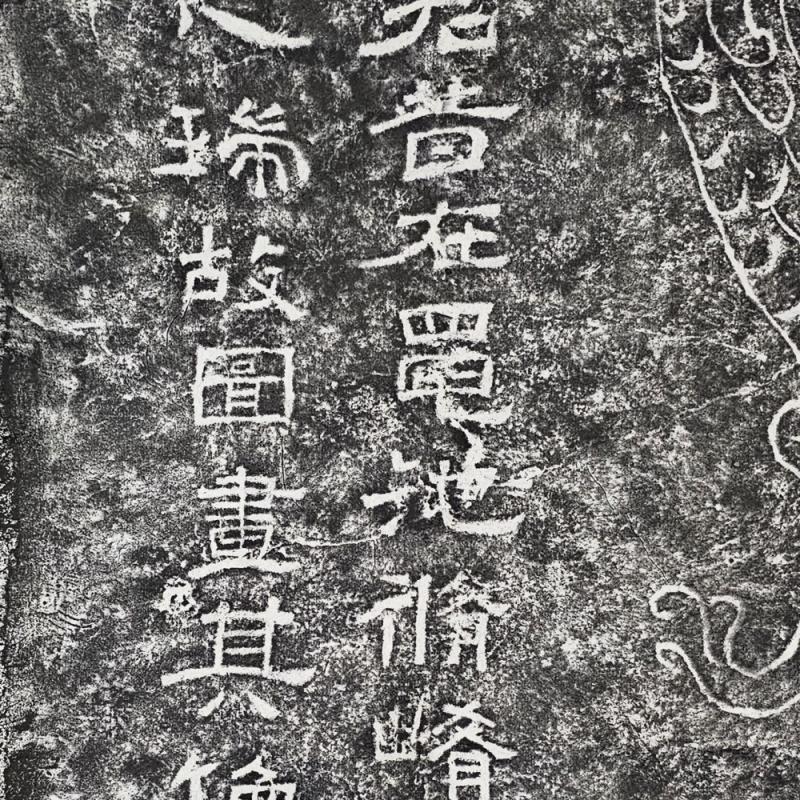 君昔在黽池脩崤
瑞故圖畫其像